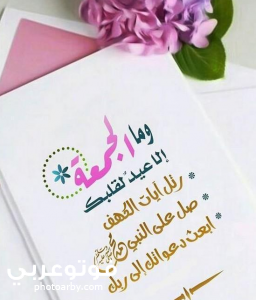 وما الجمعة
إلا عيد لقلبك
* رتل آيات الكهف
* صل على النبي ﷺ
* ابعث دعواتك إلى ربك
فوتوعربي
photoarby.com